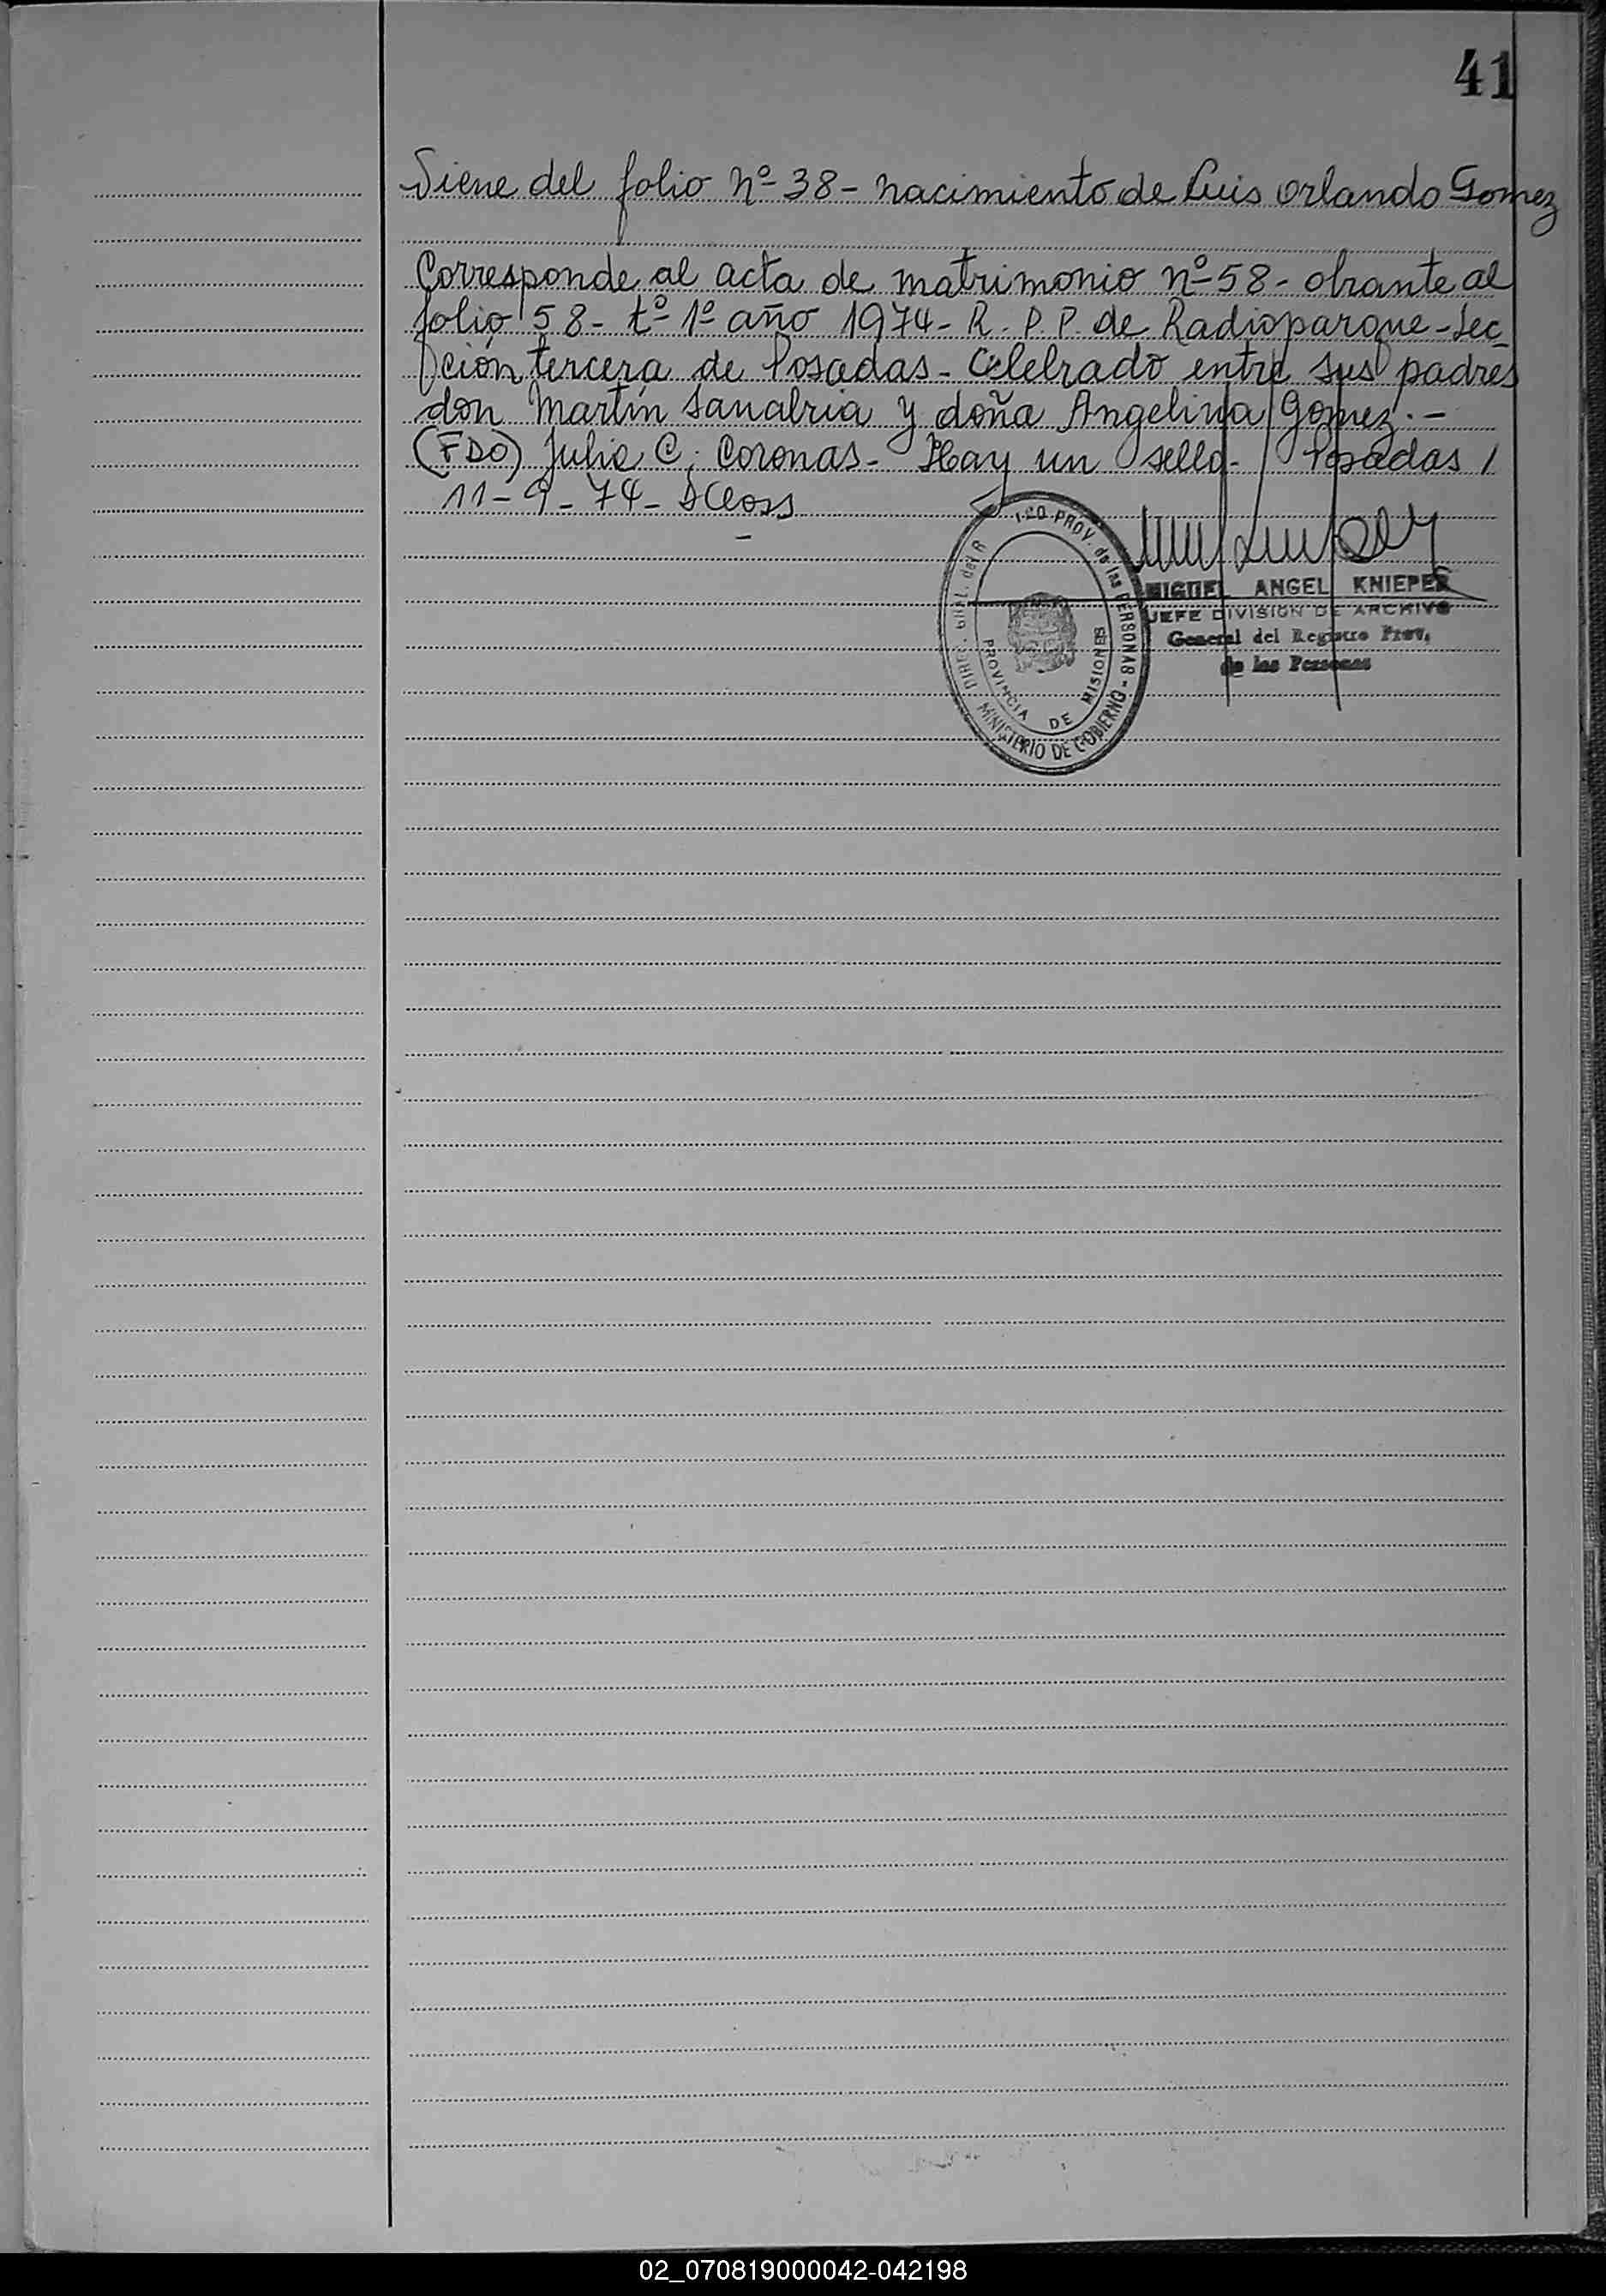 41
Viene del folio Nº 38 - nacimiento de Luis Orlando Gomez
Corresponde al acta de matrimonio nº 58 - obrante al
folio 58 - tº 1º año 1974 - R. P. P. de Radioparque - Sec_
ción tercera de Posadas - Celebrado entre sus padres
don Martín Sanabria y doña Angelina Gomez. -
(FDO) Julio C. Coronas - Hay un sello - Posadas /
11 - 9 - 74 -
PROV. de las PERSONAS -
MINISTERIO DE GOBIERNO
PROVINCIA DE MISIONES
MIGUEL ANGEL KNIEPER
JEFE DIVISION DE ARCHIVO
General del Registro Prov.
de las Personas
02_070819000042-042198